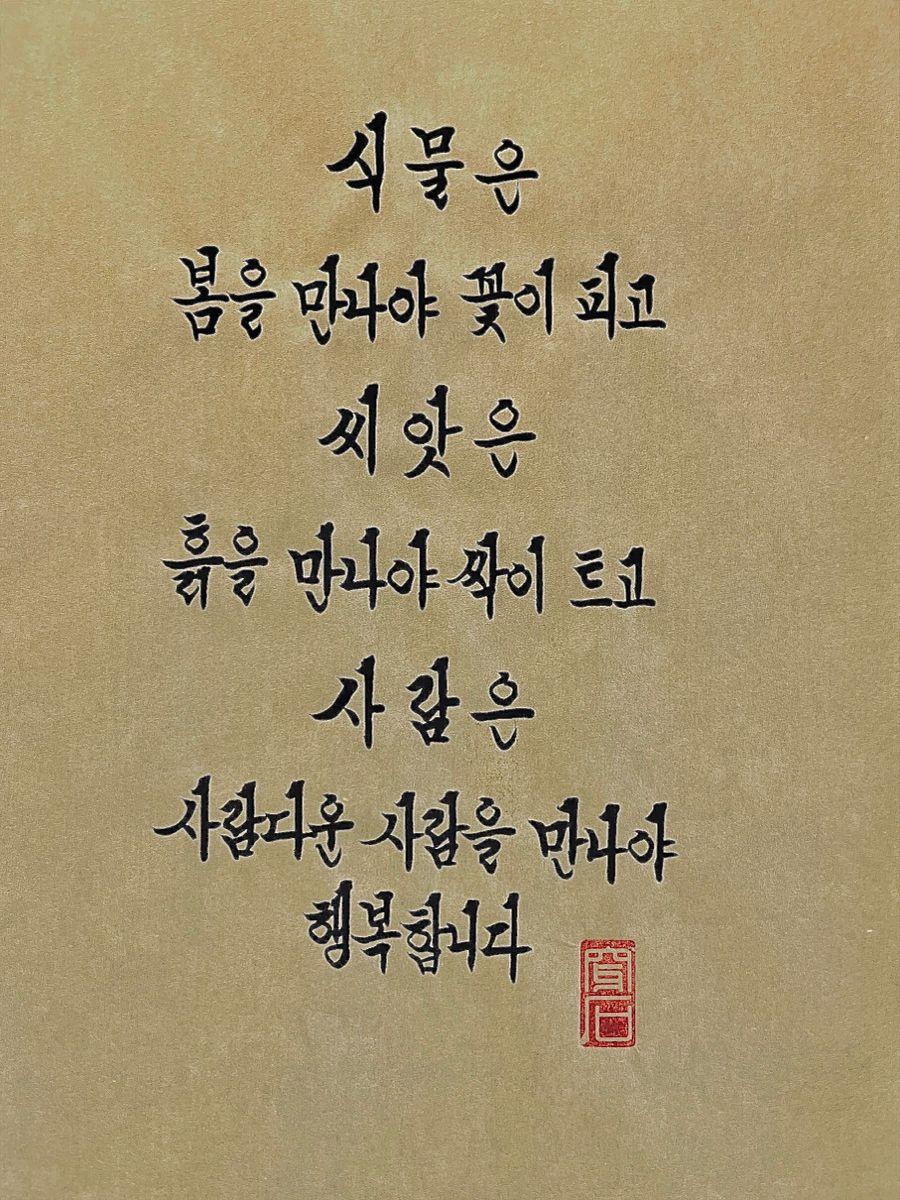 식물은
봄을 만나야 꽃이 피고
씨앗은
흙을 만나야 싹이 트고
사람은
사람다운 사람을 만나야
행복합니다